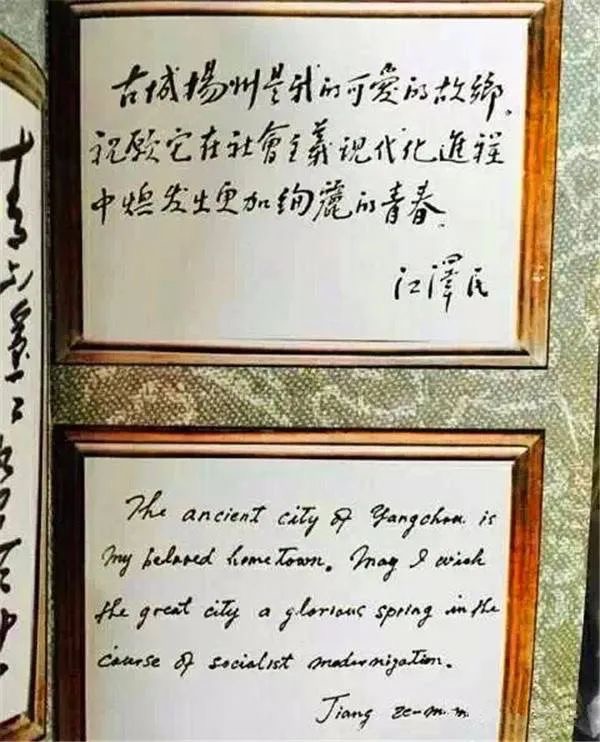 古城揚州是我的可愛的故鄉。
祝願它在社會主義現代化進程
中煥发生更加絢麗的青春.
江澤民
The ancient city of Yangchou is
my beloved hometown. May I wish
the great city a glorious spring in the
course of socialist modernization.
Jiang Ze-min